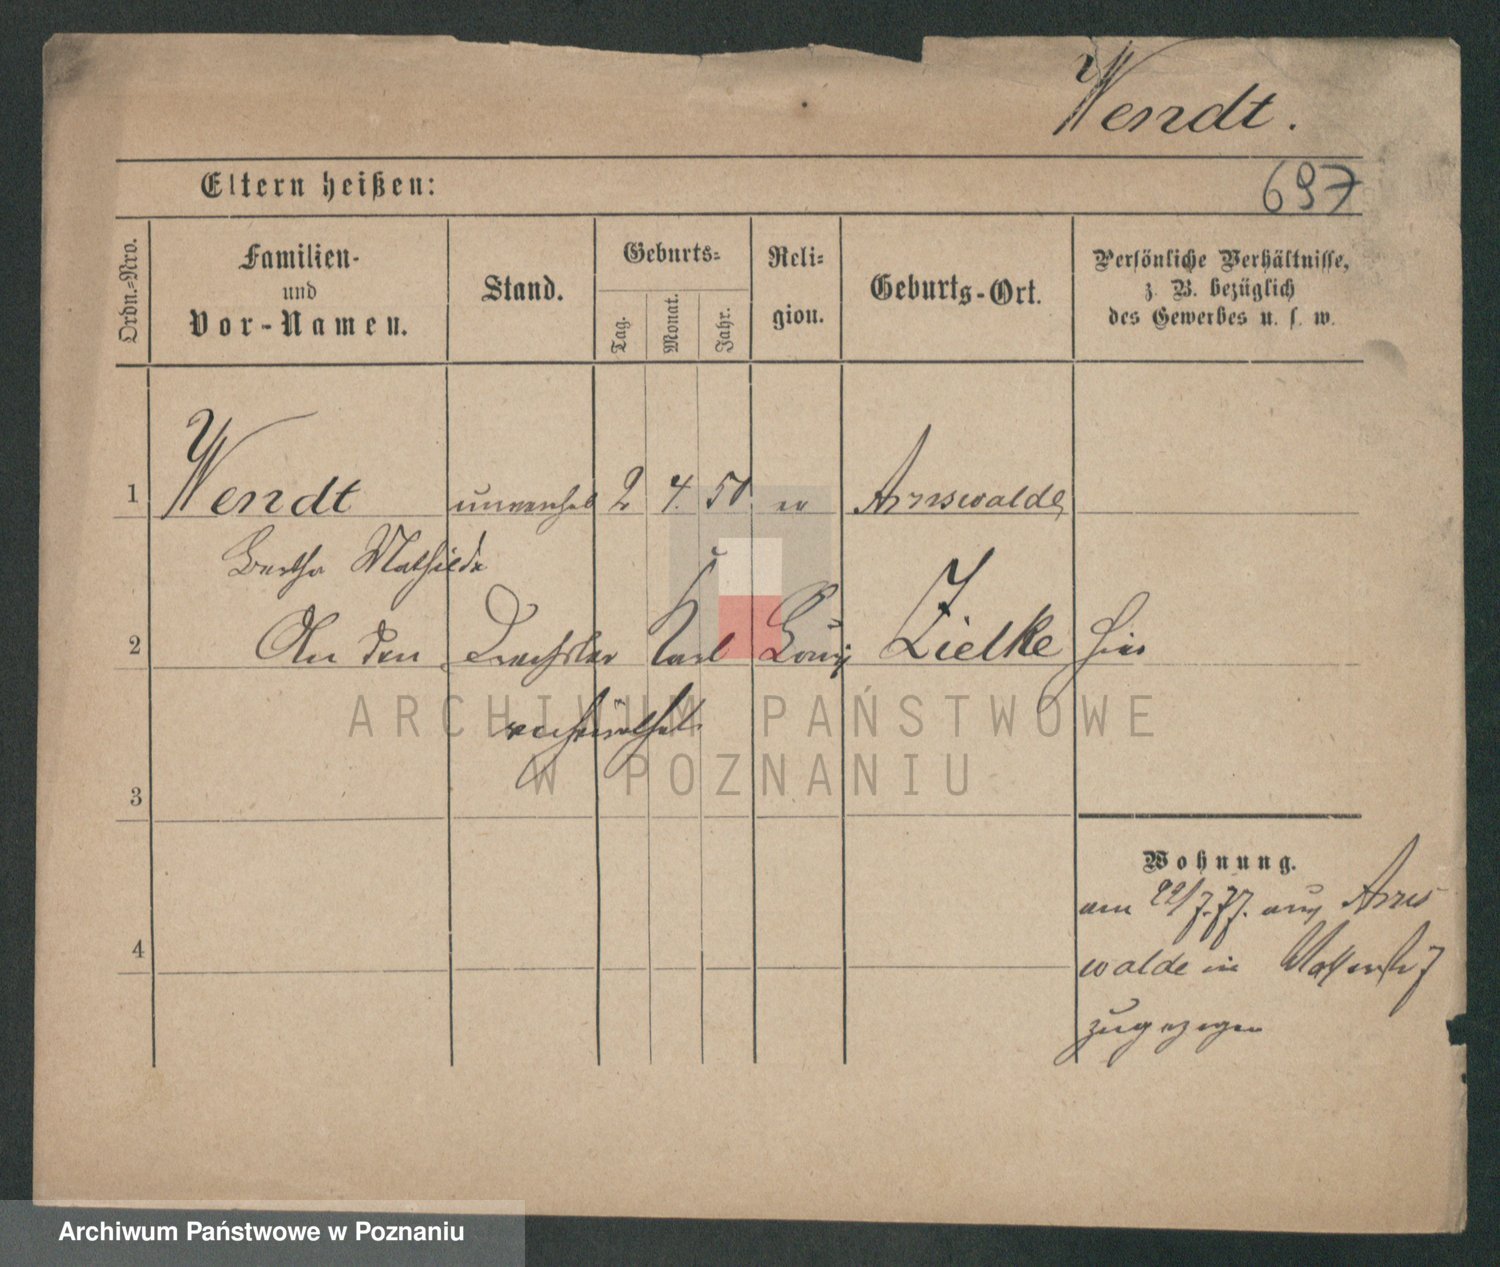 Wendt.
Eltern heißen:
697
Ordn.-Nro.
Familien-
und
Vor-Namen.
Stand.
Geburts-
Tag.
Monat.
Jahr.
Reli-
gion.
Geburts-Ort.
Persönliche Verhältnisse,
z. B. bezüglich
des Gewerbes u. s. w.
1 Wendt unverehel 2 4. 50 ev Arnswalde
Bertha Mathilde
2 An den Drechsler Karl Zielke hier
verheirathet
3
Wohnung.
am 22/7.77. aus Arns
4
walde in
zugezogen
ARCHIWUM PAŃSTWOWE
W POZNANIU
Archiwum Państwowe w Poznaniu